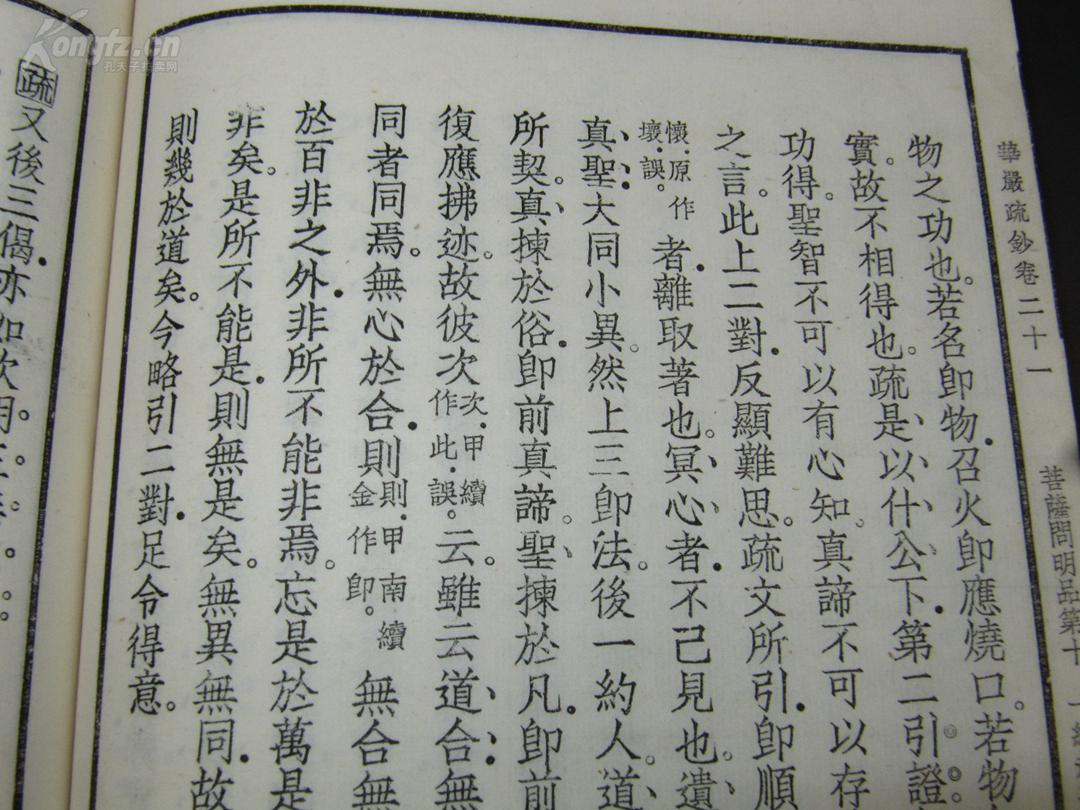 華嚴疏鈔卷二十一 菩薩問明品第十
物之功也。若名卽物。召火卽應燒口。若物
實。故不相得也。疏是以什公下。第二引證。
功得。聖智不可以有心知。真諦不可以存
之言。此上二對。反顯難思。疏文所引。卽順
懷。原作壞。誤。者。離取著也。冥心者。不己見也。遺
真、聖、大同小異。然上三卽法。後一約人。道
所契。真、揀於俗。卽前真諦。聖、揀於凡。卽前
復應拂迹。故彼次次。甲續作此。誤。云。雖云道合、無
同者同焉。無心於合。則則。甲南續金作卽。無合無
於百非之外。非所不能非焉。忘是於萬是
非矣。是所不能是。則無是矣。無異無同。故
則幾於道矣。今略引二對。足令得意。
疏又後三偈。亦如次
Kongfz.cn
孔夫子拍卖网